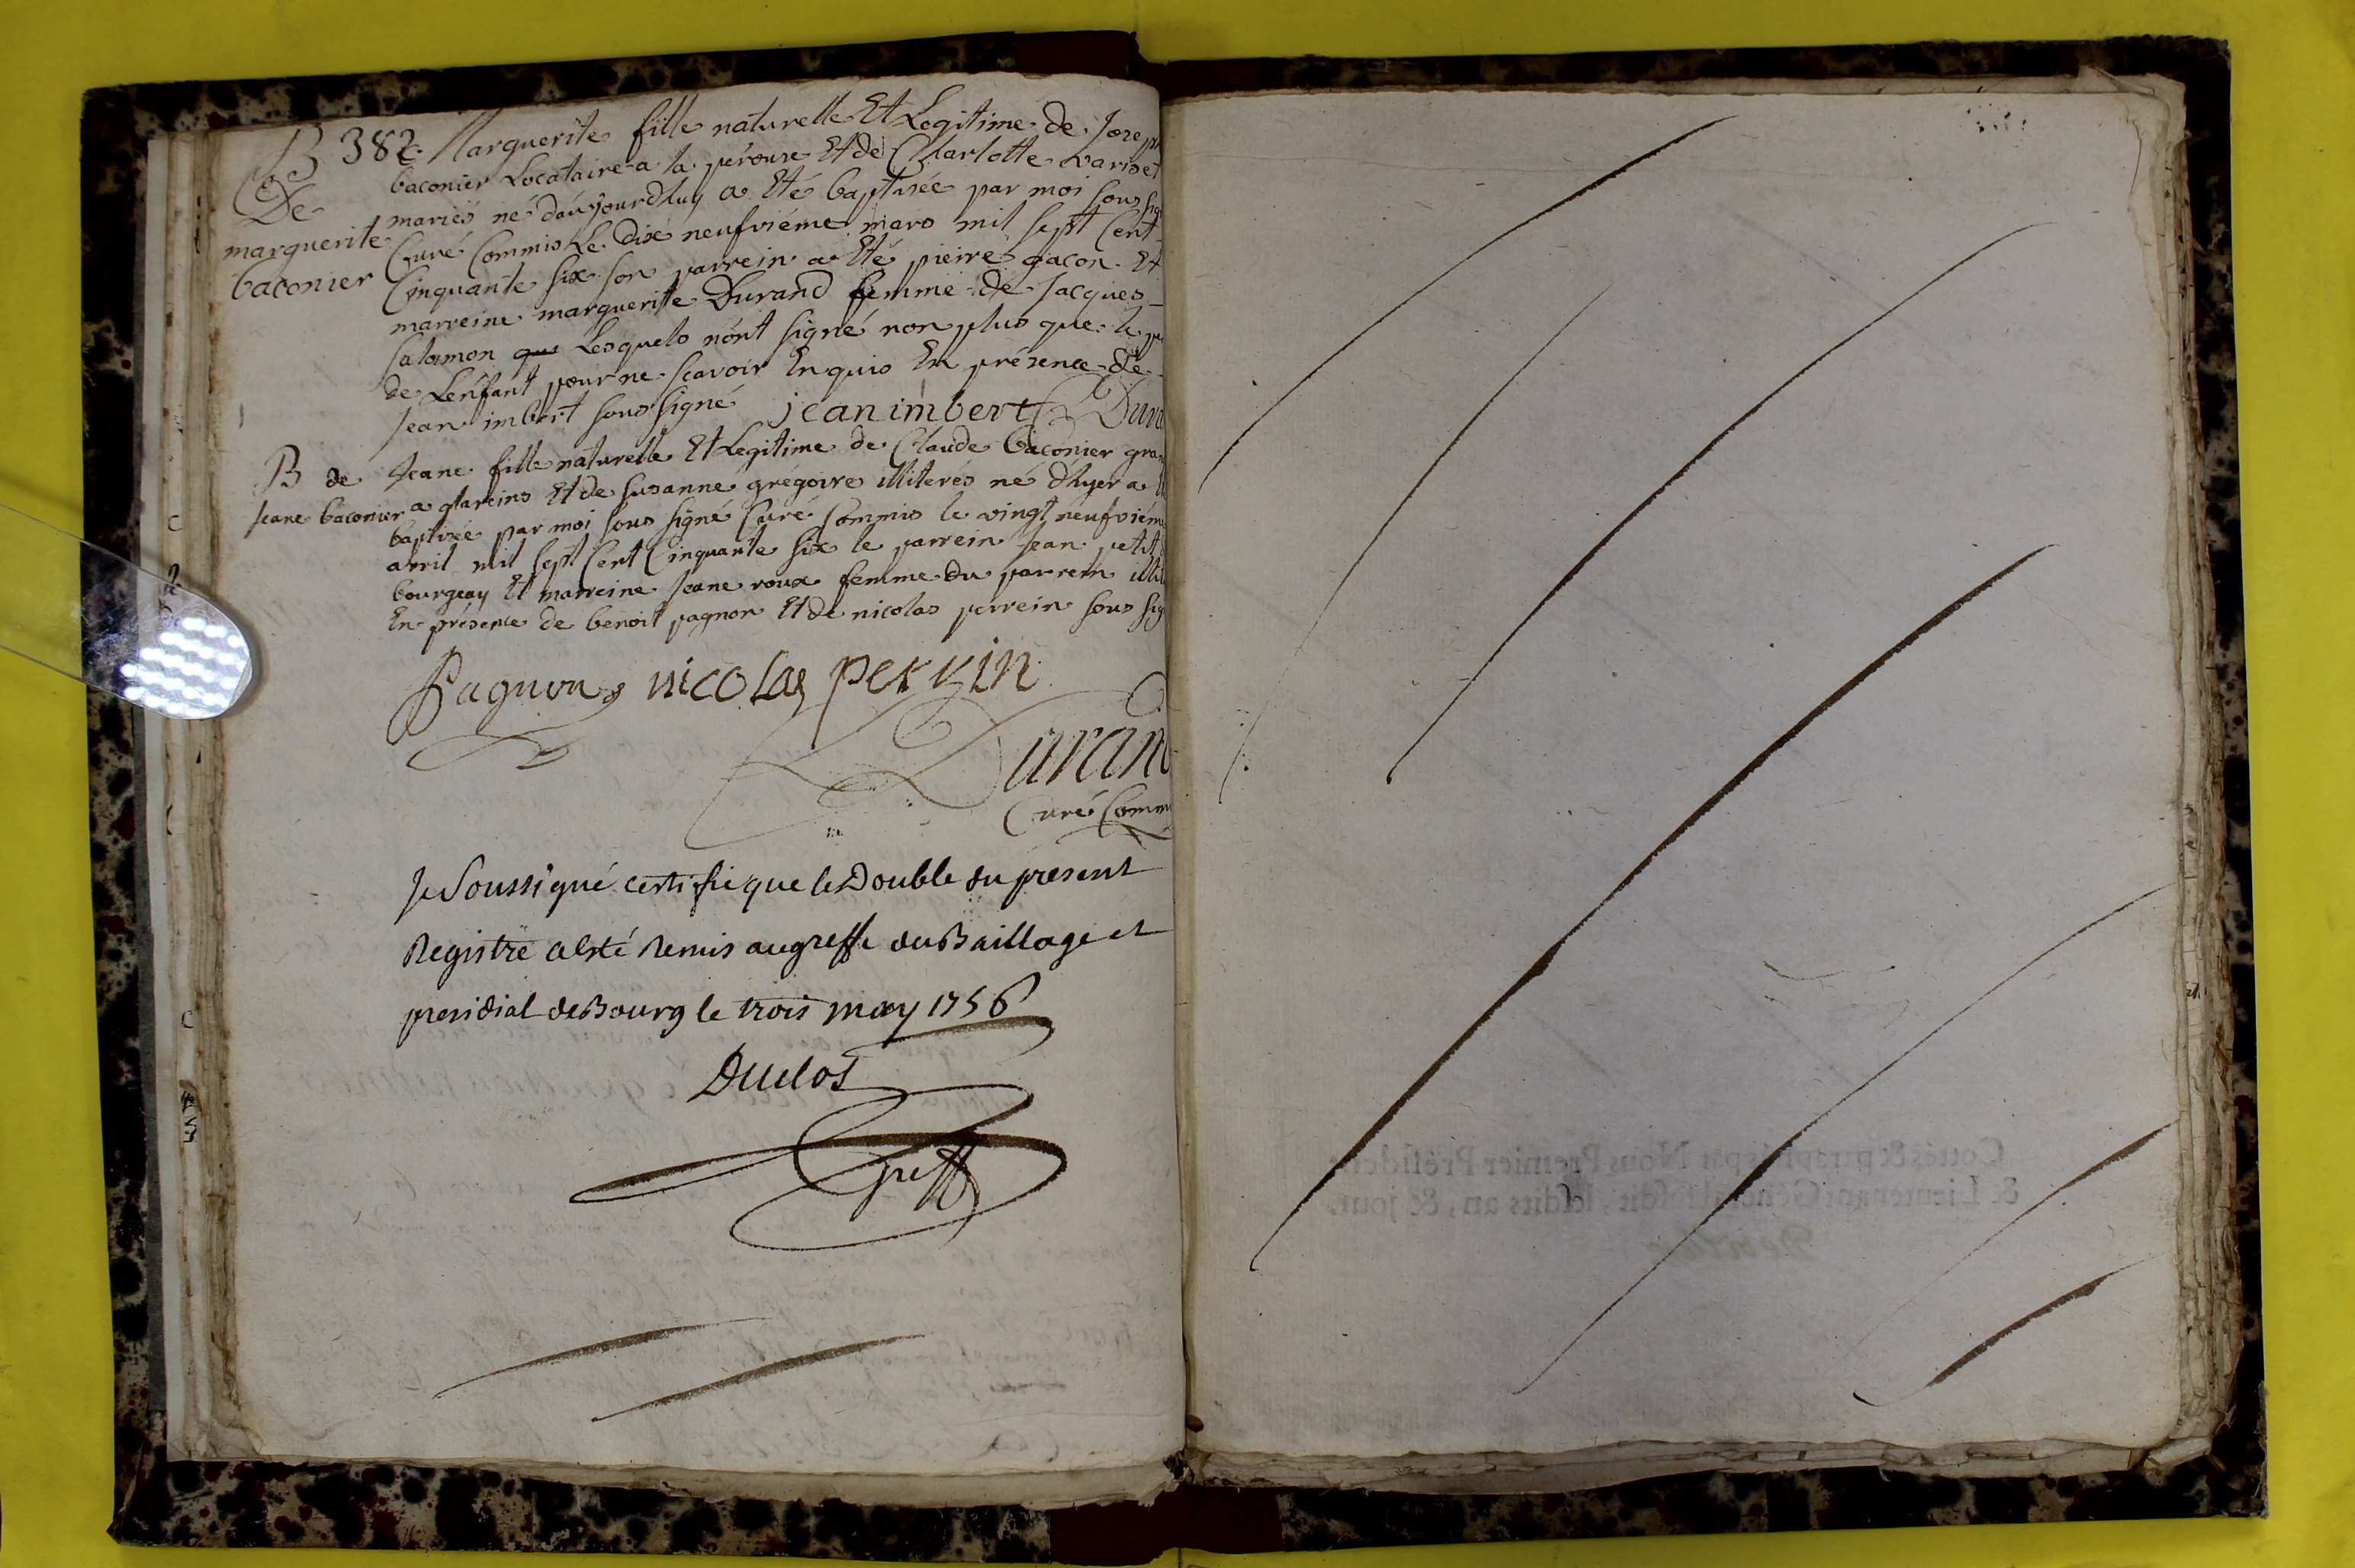 B 382 Marguerite fille naturelle Et Legitime de Josep
De baconier Locataire a la pérouse Et de Charlotte variset
mariés né daujourdhuy a Eté baptisée par moi sous sig
marguerite Curé Commis Le dix neufviéme mars mil sept Cent
baconier Cinquante six son parrein a Eté pierre gacon Et
marreine marguerite Durand femme de Jacques
salomon que Lesquels nont signé non plus que le
de Lenfant pour ne scavoir Enquis En présence de
Jean imbert sous signé jean imbert Dura
B de Jeane fille naturelle Et Legitime de Claude baconier gran
Jeane baconier a glareins Et de susanne grégoire illiterés né dhyer a
baptisée par moi sous signé Curé Commis le vingt neufviéme
avril mil sept Cent Cinquante six le parrein Jean petit
bourgeay Et marreine Jeane roux femme du parrein
En présence de benoit pagnon Et de nicolas perrein sous sig
Pagnon nicolas perrin
Durand
Curé Comm
Je Soussigné certifie que le Double du présent
Registre a esté Remis au greffe du Baillage et
presidial de Bourg le trois may 1756
Duclos
Greff
Cottés & paraphés par Nous Premier Président
& Lieutenant Général susdit, lesdits an, & jour.